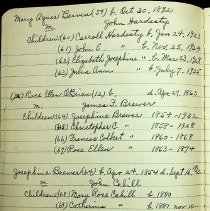 Mary Agnes Beavers (59) b. Oct 30, 1892
m John Hardesty
Children (60) Carroll Hardesty b. Jan 24, 1923
(61) John E. " b. Nov 25, 1924
(62) Elizabeth Josephine " b. Mar 23, 1928
(63) Julia Ann " b. July 7, 1925
Rose Ellen O'Brien (12) b. d. Apr 27, 1863
m James F. Brewer
Children (64) Josephine Brewer 1854 -
(65) Christopher C " 1858 - 1928
(66) Francis Cobbet " 1860 - 1868
(67) Rose Ellen " 1863 - 1874
Josephine Brewer (64) b. Apr 24 1854 d. Sept 16,
m John Cahill
Children (68) Mary Rose Cahill b. 1880
(69) Catherine " b. 1881 Nov 10